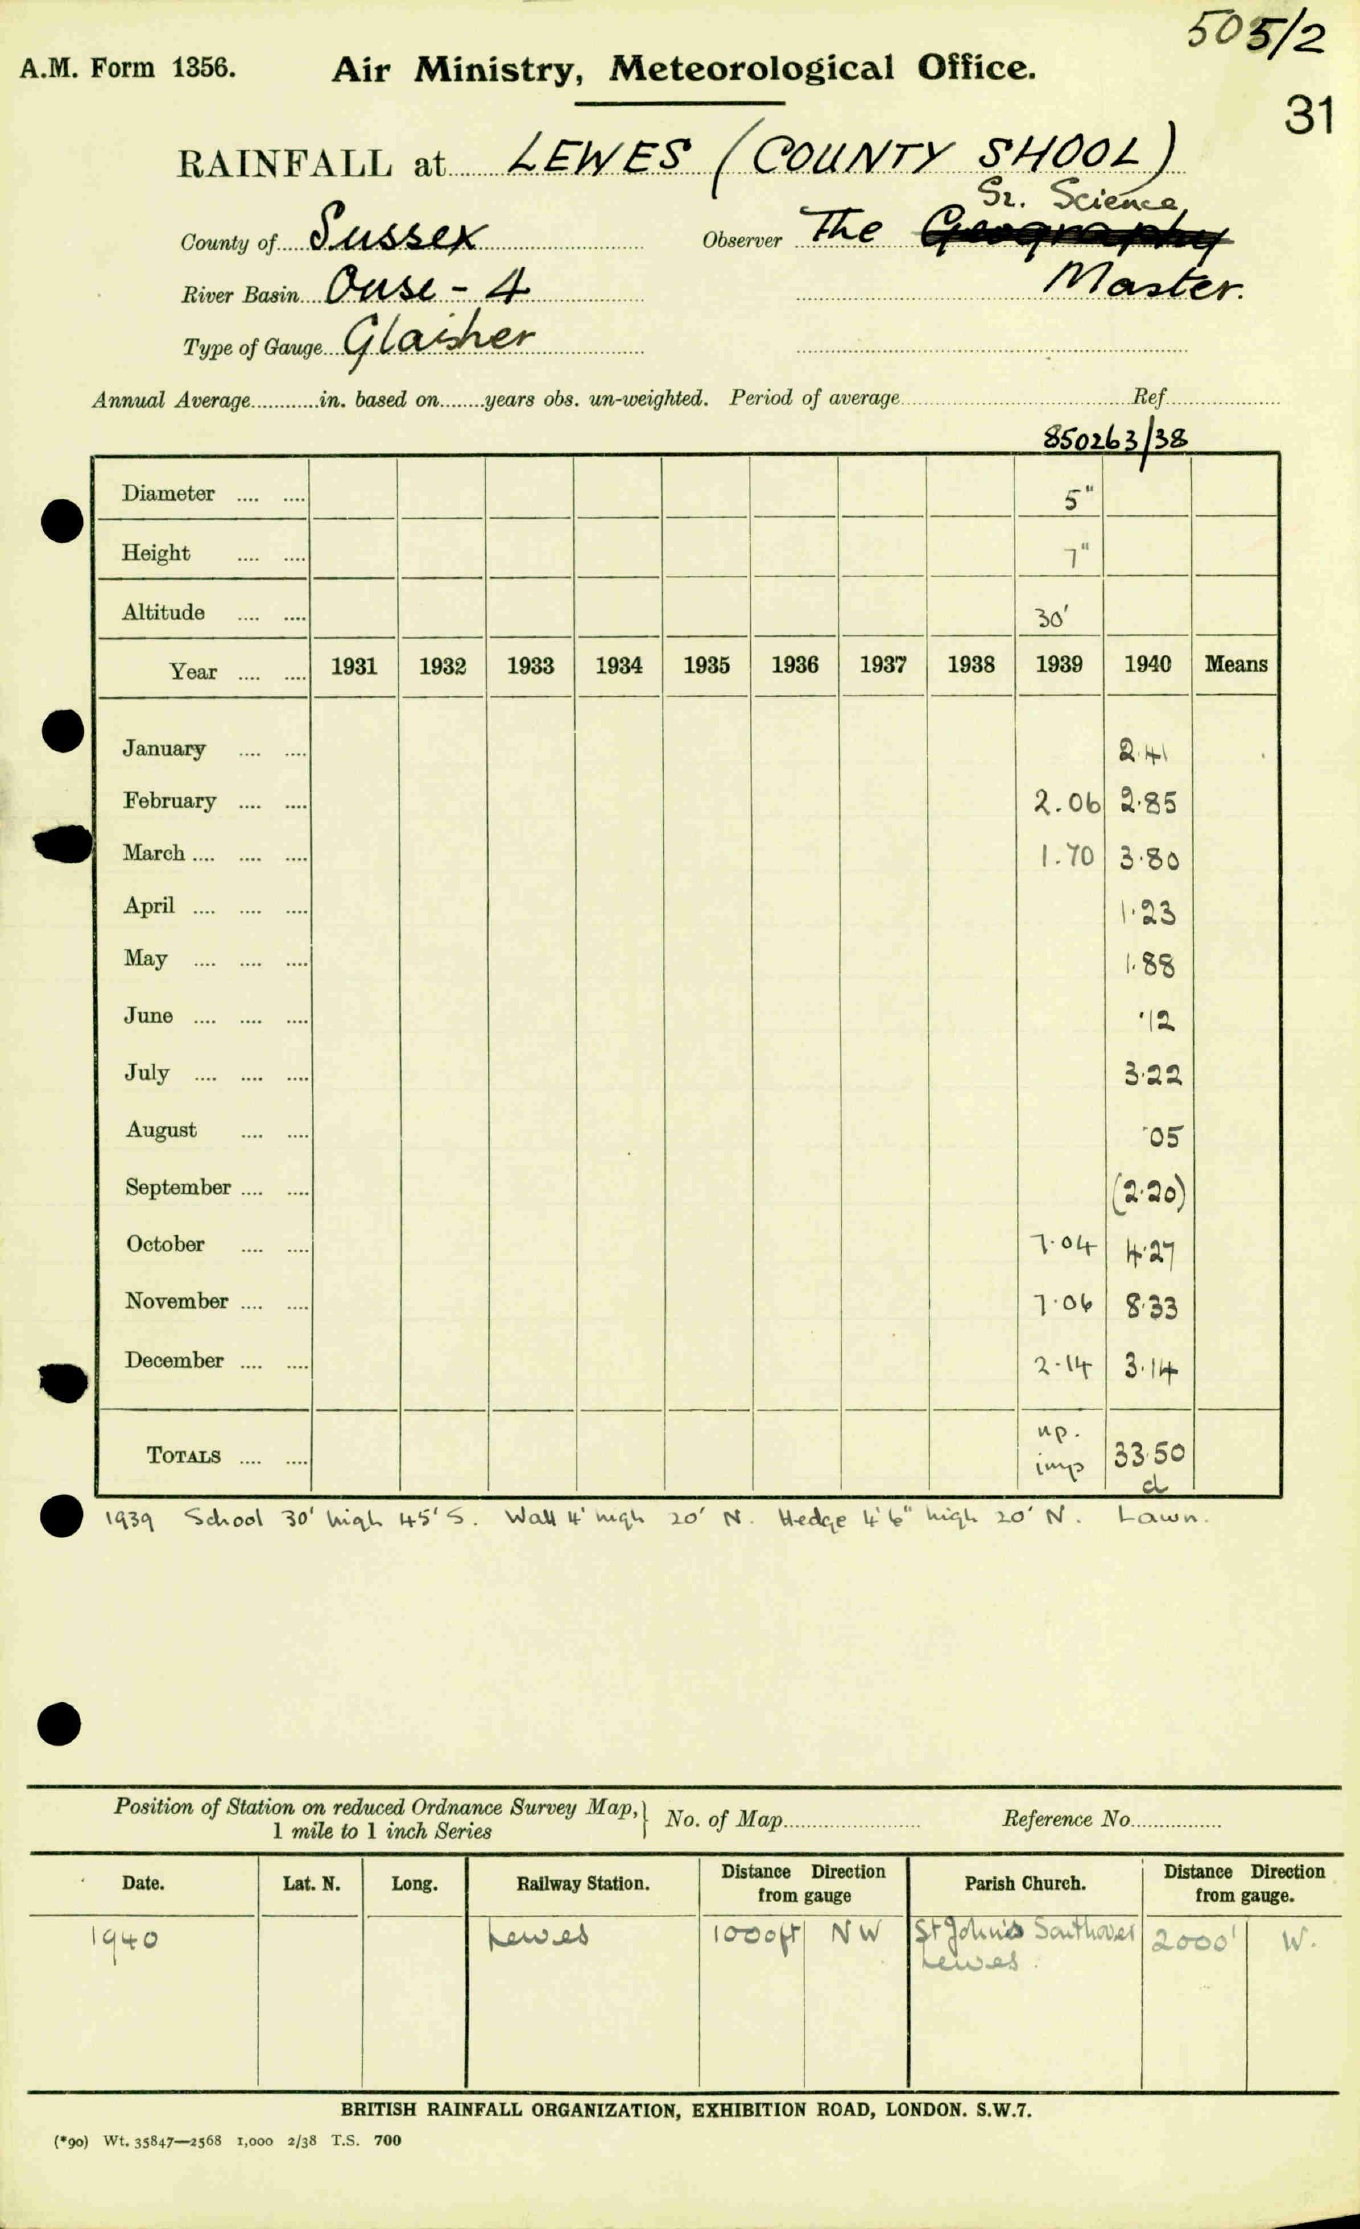 505/2
A.M. Form 1356. Air Ministry, Meteorological Office.
31
RAINFALL at LEWES (COUNTY SHOOL)
Sr. Science
County of Sussex Observer The Geography
River Basin Ouse - 4 Master.
Type of Gauge Glaisher
Annual Average in. based on years obs. un-weighted. Period of average Ref
850263/38
Diameter 5"
Height 7"
Altitude 30'
Year 1931 1932 1933 1934 1935 1936 1937 1938 1939 1940 Means
January 2.41
February 2.06 2.85
March 1.70 3.80
April 1.23
May 1.88
June .12
July 3.22
August .05
September (2.20)
October 7.04 4.27
November 7.06 8.33
December 2.14 3.14
TOTALS up. imp 33.50
d
1939 School 30' high 45' S. Wall 4' high 20' N. Hedge 4'6" high 20' N. Lawn.
Position of Station on reduced Ordnance Survey Map, 1 mile to 1 inch Series No. of Map Reference No.
Date. Lat. N. Long. Railway Station. Distance Direction from gauge Parish Church. Distance Direction from gauge.
1940 Lewes 1000ft NW St John's Southover 2000' W.
Lewes.
BRITISH RAINFALL ORGANIZATION, EXHIBITION ROAD, LONDON. S.W.7.
(*90) Wt. 35847—2568 1,000 2/38 T.S. 700